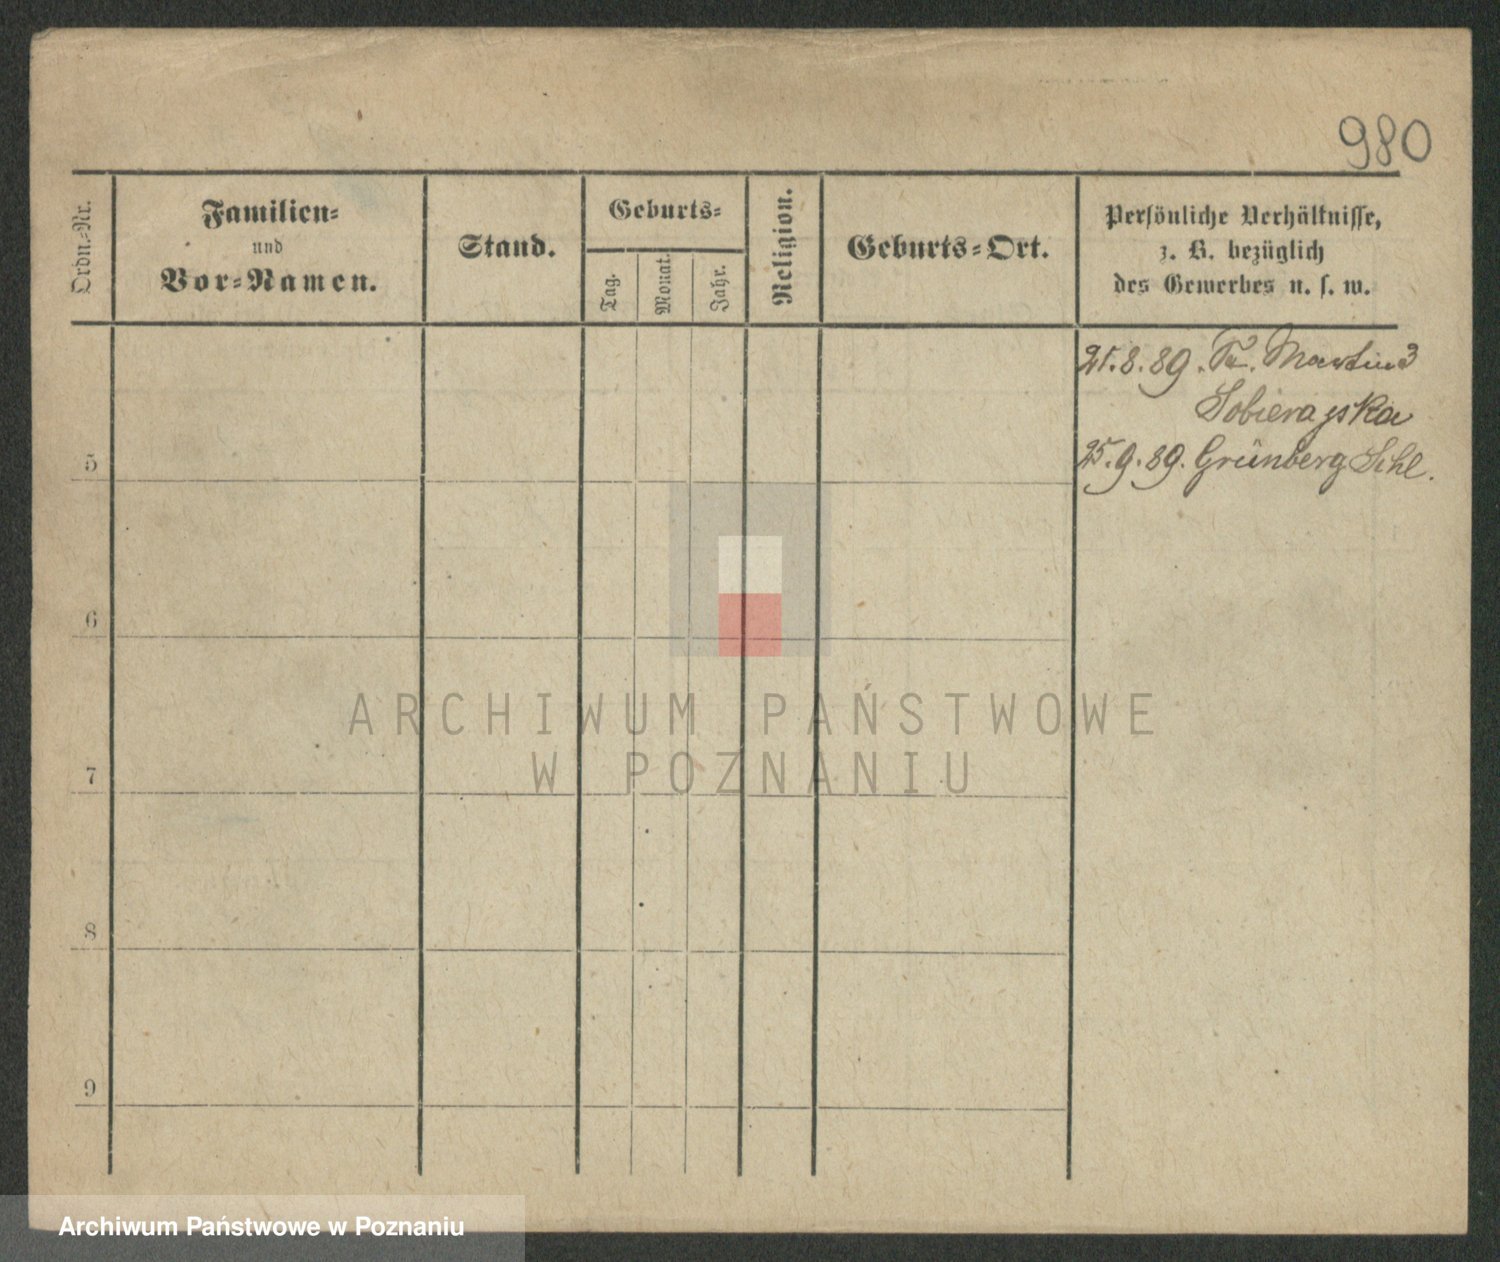 980
Ordn.-Nr.
Familien-
und
Vor-Namen.
Stand.
Geburts-
Tag.
Monat.
Jahr.
Religion.
Geburts-Ort.
Persönliche Verhältnisse,
z. B. bezüglich
des Gewerbes u. s. w.
21.8.89. St. Martin 3
Sobierajska
25.9.89. Grünberg Schl.
5
6
7
8
9
ARCHIWUM PAŃSTWOWE
W POZNANIU
Archiwum Państwowe w Poznaniu